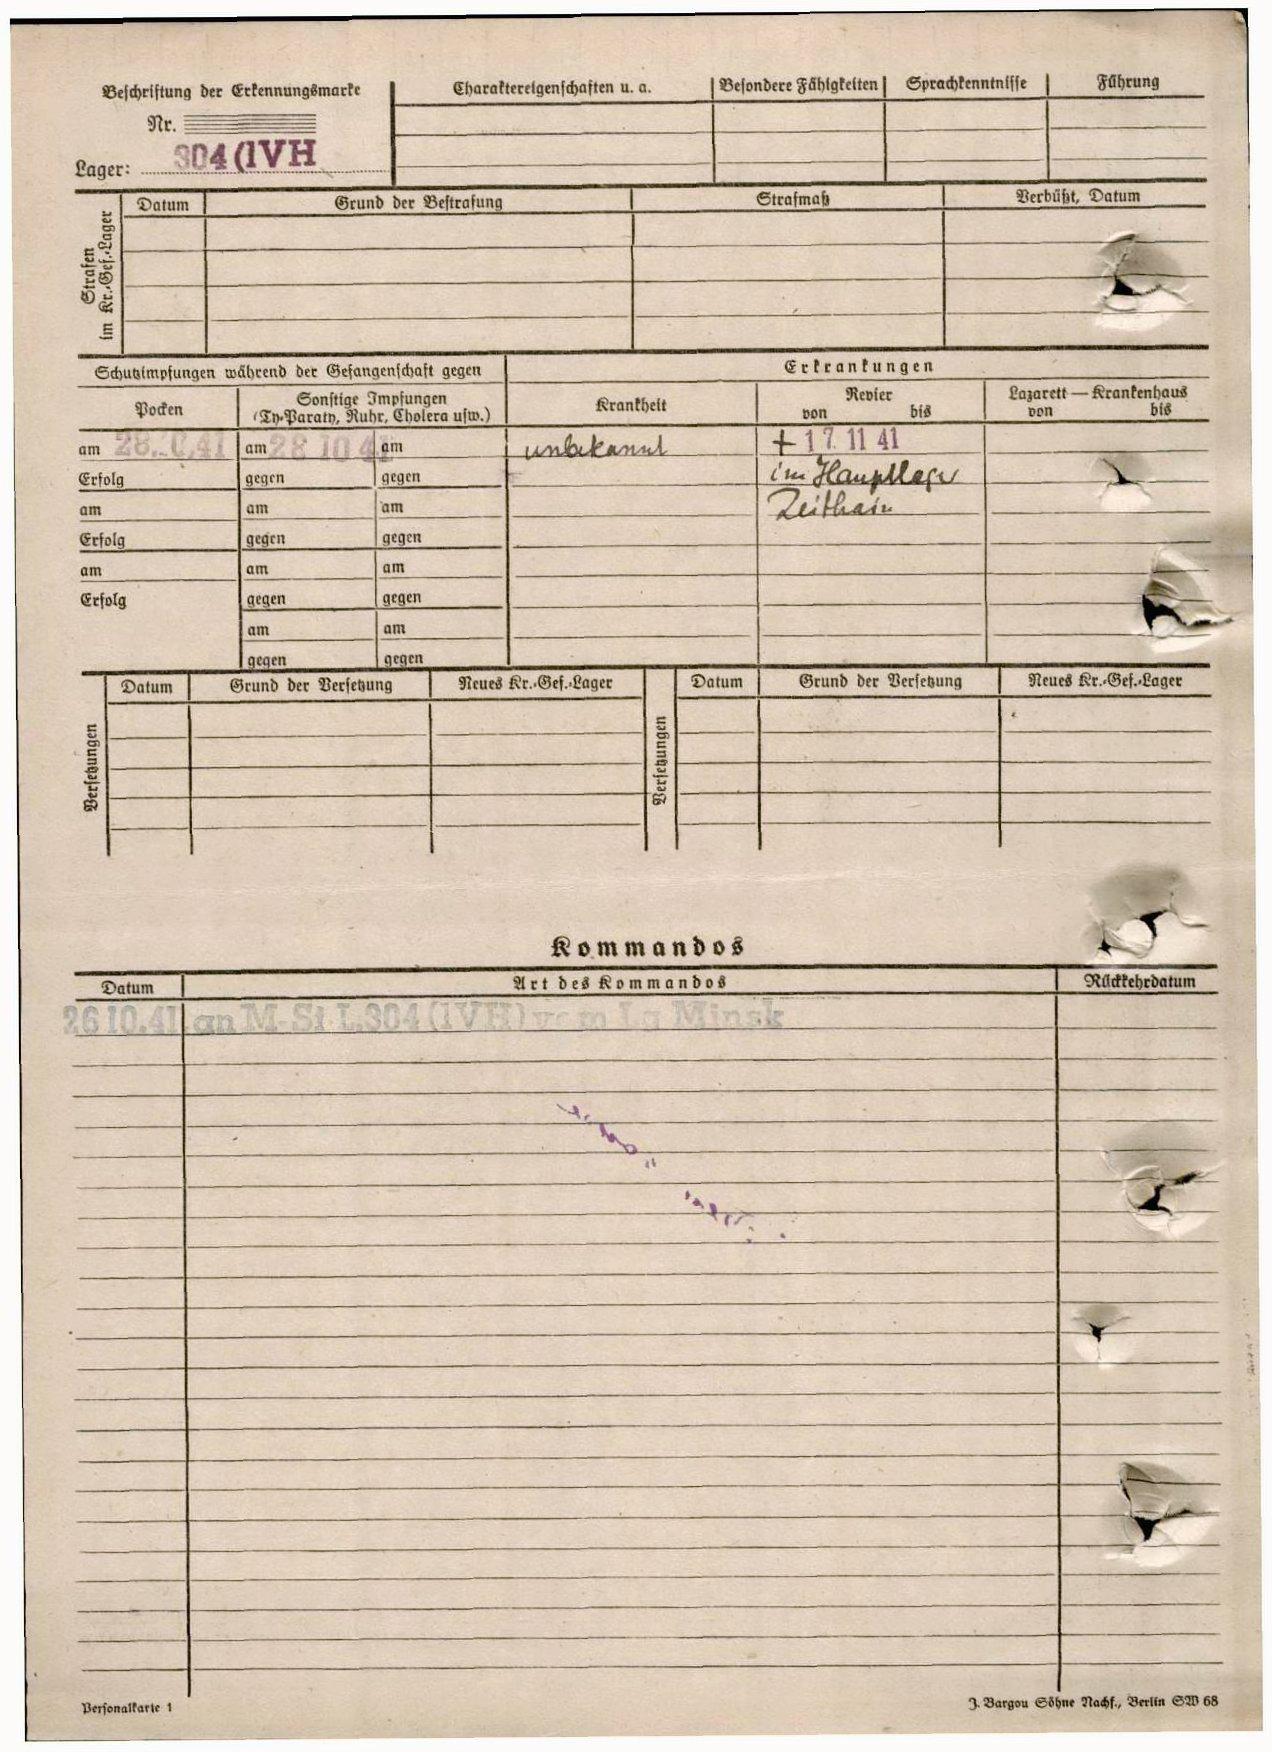 Beschriftung der Erkennungsmarke
Nr.
Lager: 304 (IVH
Charaktereigenschaften u. a. Besondere Fähigkeiten Sprachkenntnisse Führung
Strafen im Kr.-Gef.-Lager
Datum Grund der Bestrafung Strafmaß Verbüßt, Datum
Schutzimpfungen während der Gefangenschaft gegen Erkrankungen
Pocken Sonstige Impfungen (Ty-Paraty, Ruhr, Cholera usw.) Krankheit Revier von bis Lazarett — Krankenhaus von bis
am 28. 41 am 28 10 41 am unbekannt + 17 11 41
Erfolg gegen gegen im Hauptlager
am am am Zeithain
Erfolg gegen gegen
am am am
Erfolg gegen gegen
am am
gegen gegen
Versetzungen
Datum Grund der Versetzung Neues Kr.-Gef.-Lager
Versetzungen
Datum Grund der Versetzung Neues Kr.-Gef.-Lager
Kommandos
Datum Art des Kommandos Rückkehrdatum
26 10.41 an M-St L.304 (IVH) vom Lg Minsk
Personalkarte 1
J. Bargou Söhne Nachf., Berlin SW 68